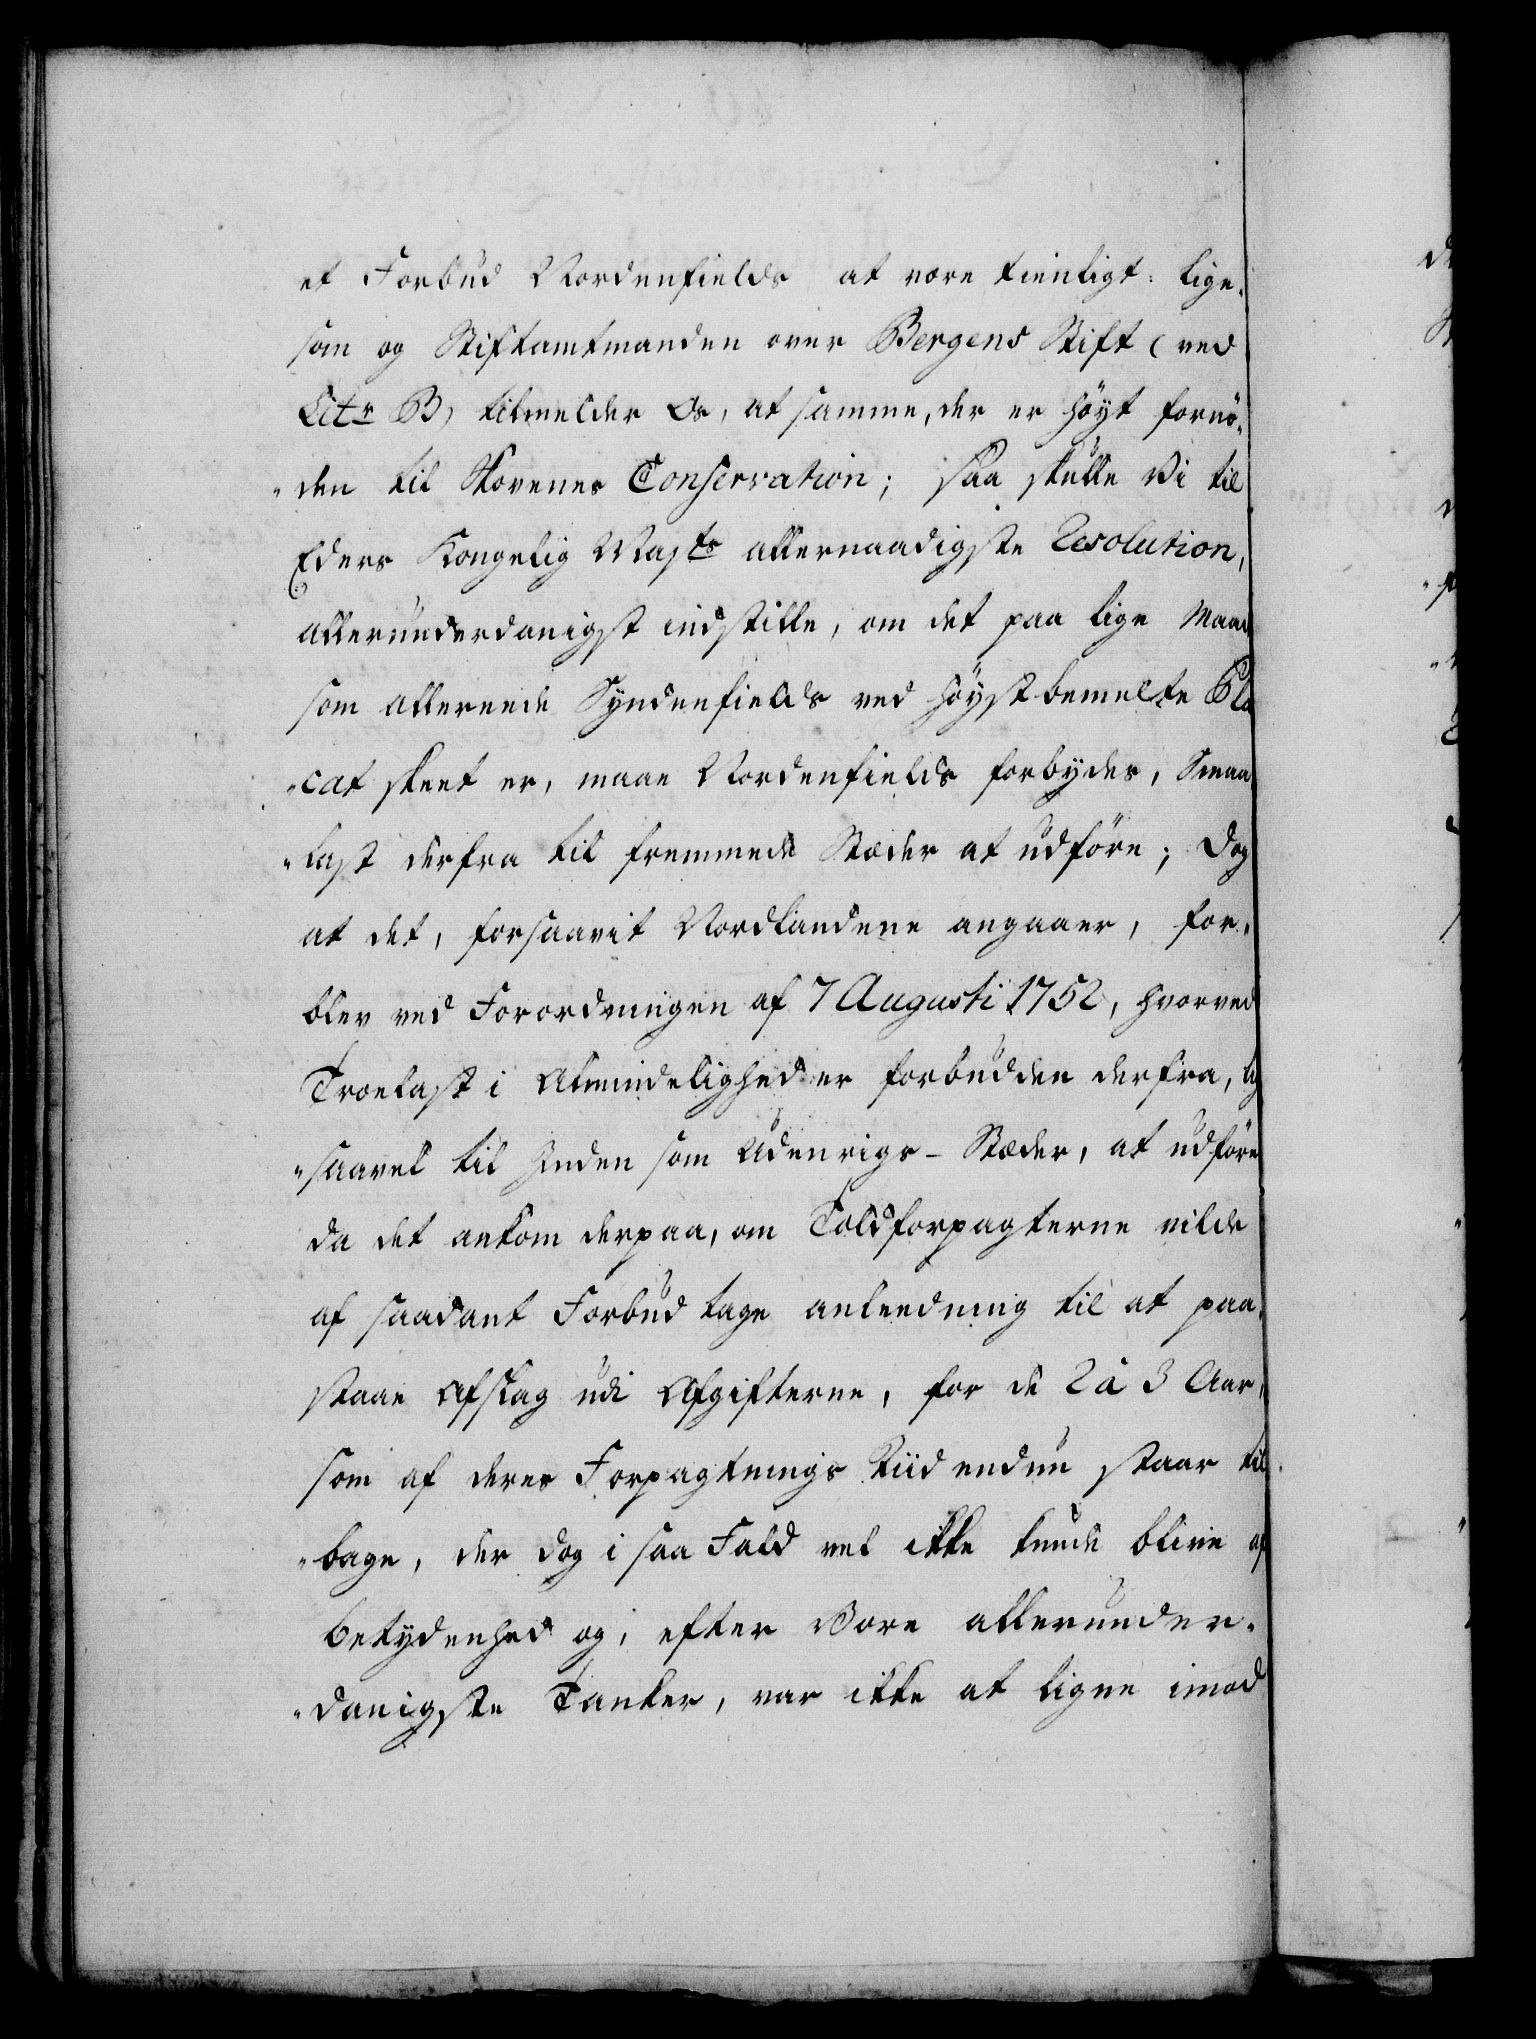 et Forbud Nordenfields at være tienligt: lige-
som og Stiftamtmanden over Bergens Stift (ved
Litr B) tilmelder Os, at samme, der er höyt fornö-
"den til Skovenes Conservation; saa skulle Vi til
Eders Kongelig Majts allernaadigste Resolution,
allerunderdanigst indstille, om det paa lige Maade
som allereede Syndenfields ved höystbemelte Pla
"cat skeet er, maae Nordenfields forbydes, Smaa
"last derfra til fremmede Stæder at udföre; Dog
at det, forsaavit Nordlandene angaaer, for-
blev ved Forordningen af 7 Augusti 1752, hvorved
Troelast i Almindelighed er forbudden derfra, lig
"saavel til Inden som Udenrigs-Stæder, at udföre
da det ankom derpaa, om Toldforpagterne vilde
af saadant Forbud tage anleedning til at paa-
staae Afslag udi Afgifterne, for de 2 à 3 Aar,
som af deres Forpagtnings Tiid endnu staar til
"bage, der dog i saa Fald vel ikke kunde blive af
betydenhed og, efter Vore allerunder-
"danigste Tanker, var ikke at ligne imod